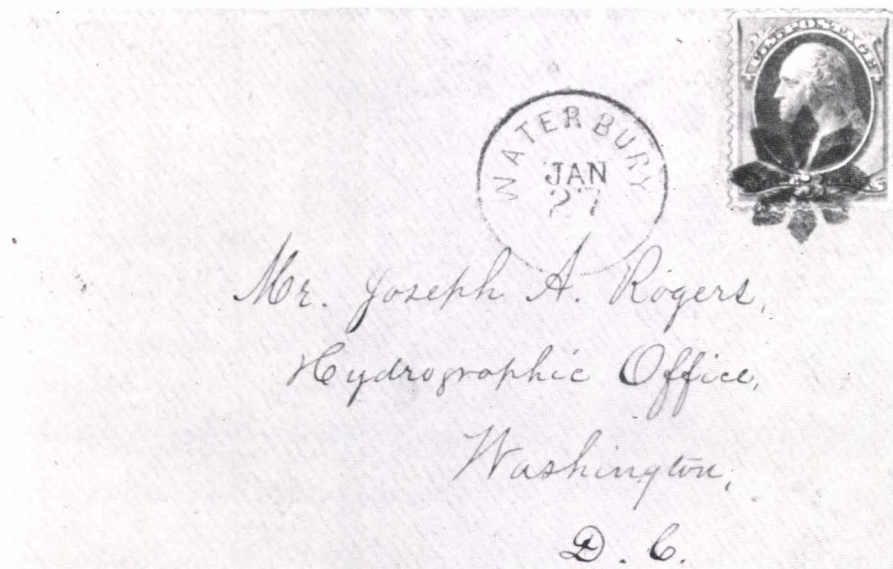 U.S. POSTAGE
WATERBURY
JAN
27
Mr. Joseph A. Rogers,
Hydrographic Office,
Washington,
D. C.